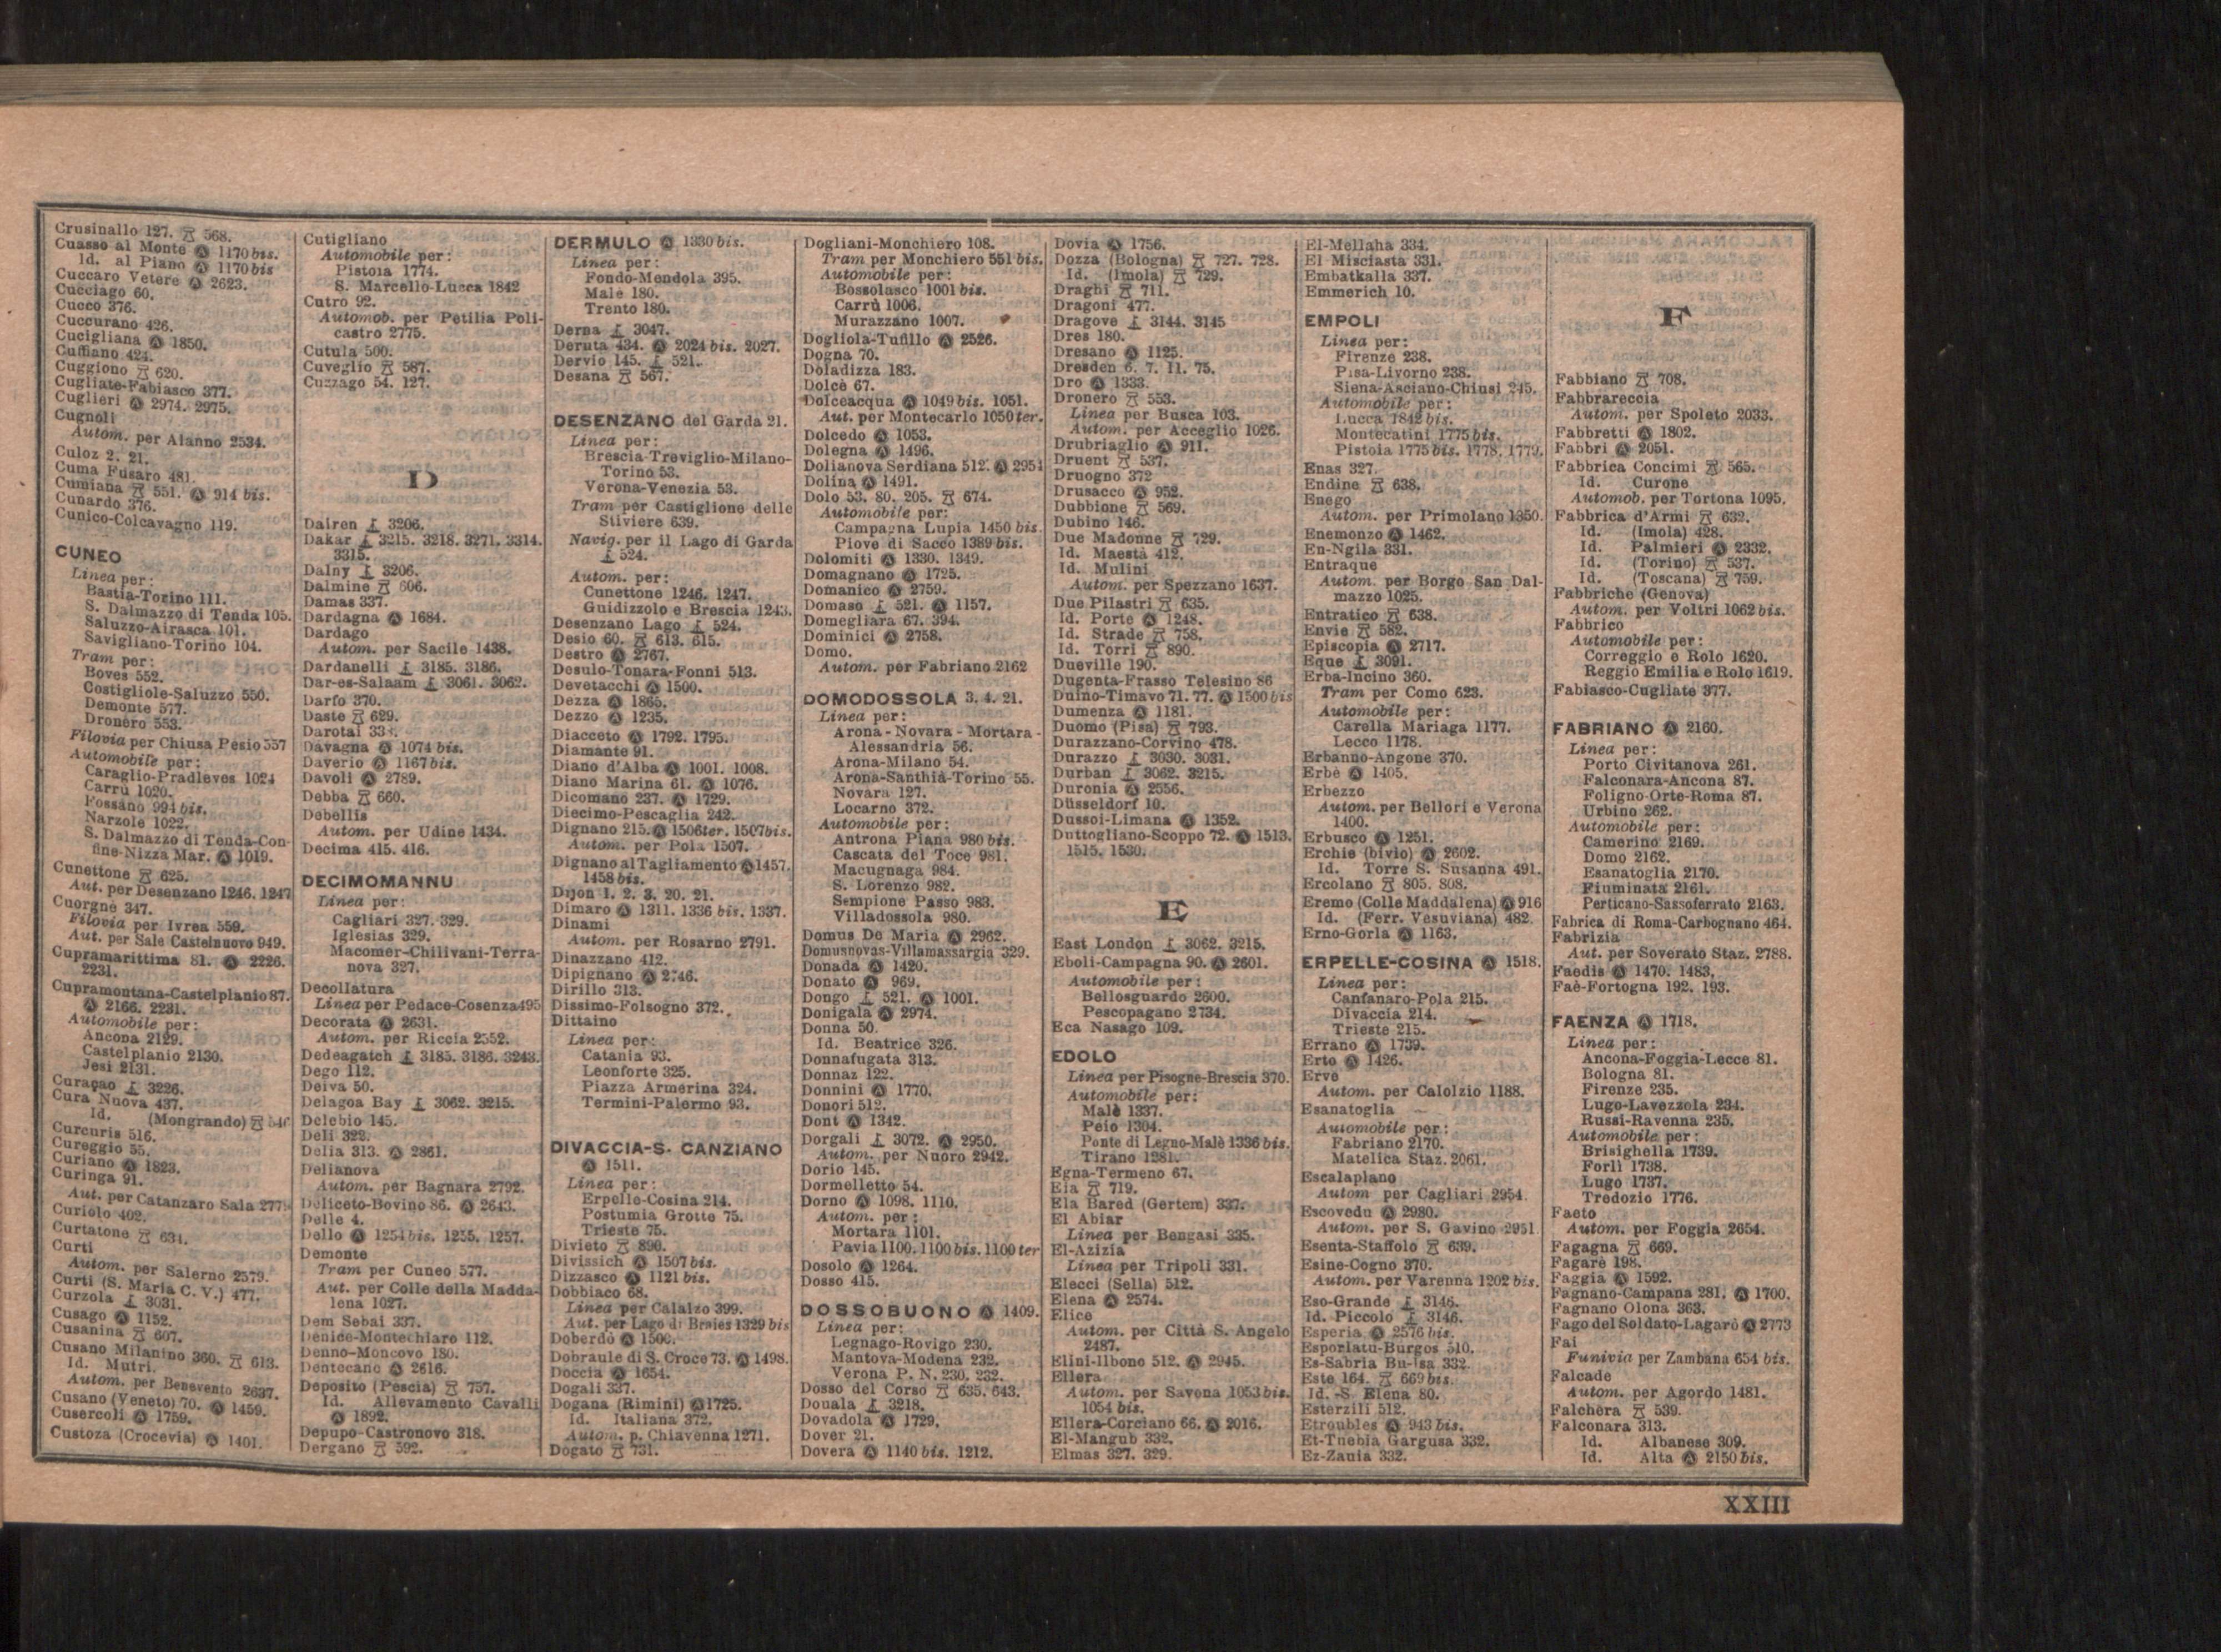 Crusinallo 127. 568.
Cuasso al Monte Ⓐ 1170 bis.
Id. al Piano Ⓐ 1170 bis
Cuccaro Vetere Ⓐ 2623.
Cucciago 60.
Cucco 376.
Cuccurano 426.
Cucigliana Ⓐ 1850.
Cuffiano 424.
Cuggiono 620.
Cugliate-Fabiasco 377.
Cuglieri Ⓐ 2974. 2975.
Cugnoli
Autom. per Alanno 2534.
Culoz 2. 21.
Cuma Fusaro 481.
Cumiana 551. Ⓐ 914 bis.
Cunardo 376.
Cunico-Colcavagno 119.
CUNEO
Linea per:
Bastia-Torino 111.
S. Dalmazzo di Tenda 105.
Saluzzo-Airasca 101.
Savigliano-Torino 104.
Tram per:
Boves 552.
Costigliole-Saluzzo 550.
Demonte 577.
Dronero 553.
Filovia per Chiusa Pesio 557
Automobile per:
Caraglio-Pradleves 1024
Carrù 1020.
Fossano 994 bis.
Narzole 1022.
S. Dalmazzo di Tenda-Con-
fine-Nizza Mar. Ⓐ 1019.
Cunettone 625.
Aut. per Desenzano 1246. 1247
Cuorgnè 347.
Filovia per Ivrea 559.
Aut. per Sale Castelnuovo 949.
Cupramarittima 81. Ⓐ 2226.
2231.
Cupramontana-Castelplanio 87.
Ⓐ 2166. 2231.
Automobile per:
Ancona 2129.
Castelplanio 2130.
Jesi 2131.
Curaçao 3226.
Cura Nuova 437.
Id. (Mongrando) 546
Curcuris 516.
Cureggio 55.
Curiano Ⓐ 1823.
Curinga 91.
Aut. per Catanzaro Sala 2779
Curiolo 402.
Curtatone 634.
Curti
Autom. per Salerno 2579.
Curti (S. Maria C. V.) 477.
Curzola 3031.
Cusago Ⓐ 1152.
Cusanina 607.
Cusano Milanino 360. 613.
Id. Mutri.
Autom. per Benevento 2637.
Cusano (Veneto) 70. Ⓐ 1459.
Cusercoli Ⓐ 1759.
Custoza (Crocevia) Ⓐ 1401.
Cutigliano
Automobile per:
Pistoia 1774.
S. Marcello-Lucca 1842
Cutro 92.
Automob. per Petilia Poli-
castro 2775.
Cutula 500.
Cuveglio 587.
Cuzzago 54. 127.
D
Dairen 3206.
Dakar 3215. 3218. 3271. 3314.
3315.
Dalny 3206.
Dalmine 606.
Damas 337.
Dardagna Ⓐ 1684.
Dardago
Autom. per Sacile 1438.
Dardanelli 3185. 3186.
Dar-es-Salaam 3061. 3062.
Darfo 370.
Daste 629.
Darotai
Davagna Ⓐ 1074 bis.
Daverio Ⓐ 1167 bis.
Davoli Ⓐ 2789.
Debba 660.
Debellis
Autom. per Udine 1434.
Decima 415. 416.
DECIMOMANNU
Linea per:
Cagliari 327. 329.
Iglesias 329.
Macomer-Chilivani-Terra-
nova 327.
Decollatura
Linea per Pedace-Cosenza 495
Decorata Ⓐ 2631.
Autom. per Riccia 2552.
Dedeagatch 3185. 3186. 3243.
Dego 112.
Deiva 50.
Delagoa Bay 3062. 3215.
Delebio 145.
Deli 322.
Delia 313. Ⓐ 2861.
Delianova
Autom. per Bagnara 2792.
Deliceto-Bovino 86. Ⓐ 2643.
Delle 4.
Dello Ⓐ 1254 bis. 1255. 1257.
Demonte
Tram per Cuneo 577.
Aut. per Colle della Madda-
lena 1027.
Dem Sebai 337.
Denice-Montechiaro 112.
Denno-Moncovo 180.
Dentecane Ⓐ 2616.
Deposito (Pescia) 757.
Id. Allevamento Cavalli
Ⓐ 1892.
Depupo-Castronovo 318.
Dergano 592.
DERMULO Ⓐ 1330 bis.
Linea per:
Fondo-Mendola 395.
Malè 180.
Trento 180.
Derna 3047.
Deruta 434. Ⓐ 2024 bis. 2027.
Dervio 145. 521.
Desana 567.
DESENZANO del Garda 21.
Linea per:
Brescia-Treviglio-Milano-
Torino 53.
Verona-Venezia 53.
Tram per Castiglione delle
Stiviere 639.
Navig. per il Lago di Garda
524.
Autom. per:
Cunettone 1246. 1247.
Guidizzolo e Brescia 1243.
Desenzano Lago 524.
Desio 60. 613. 615.
Destro Ⓐ 2767.
Desulo-Tonara-Fonni 513.
Devetacchi Ⓐ 1500.
Dezza Ⓐ 1865.
Dezzo Ⓐ 1235.
Diacceto Ⓐ 1792. 1795.
Diamante 91.
Diano d'Alba Ⓐ 1001. 1008.
Diano Marina 61. Ⓐ 1076.
Dicomano 237. Ⓐ 1729.
Diecimo-Pescaglia 242.
Dignano 215. Ⓐ 1506ter. 1507bis.
Autom. per Pola 1507.
Dignano al Tagliamento Ⓐ 1457.
1458 bis.
Dijon 1. 2. 3. 20. 21.
Dimaro Ⓐ 1311. 1336 bis. 1337.
Dinami
Autom. per Rosarno 2791.
Dinazzano 412.
Dipignano Ⓐ 2746.
Dirillo 313.
Dissimo-Folsogno 372.
Dittaino
Linea per:
Catania 93.
Leonforte 325.
Piazza Armerina 324.
Termini-Palermo 93.
DIVACCIA-S. CANZIANO
Ⓐ 1511.
Linea per:
Erpelle-Cosina 214.
Postumia Grotte 75.
Trieste 75.
Divieto 896.
Divissich Ⓐ 1507 bis.
Dizzasco Ⓐ 1121 bis.
Dobbiaco 68.
Linea per Calalzo 399.
Aut. per Lago di Braies 1329 bis
Doberdò Ⓐ 1500.
Dobraule di S. Croce 73. Ⓐ 1498.
Doccia Ⓐ 1654.
Dogali 337.
Dogana (Rimini) Ⓐ 1725.
Id. Italiana 372.
Autom. p. Chiavenna 1271.
Dogato 731.
Dogliani-Monchiero 108.
Tram per Monchiero 551 bis.
Automobile per:
Bossolasco 1001 bis.
Carrù 1006.
Murazzano 1007.
Dogliola-Tufillo Ⓐ 2526.
Dogna 70.
Doladizza 183.
Dolcè 67.
Dolceacqua Ⓐ 1049 bis. 1051.
Aut. per Montecarlo 1050 ter.
Dolcedo Ⓐ 1053.
Dolegna Ⓐ 1496.
Dolianova Serdiana 512. Ⓐ 2954
Dolina Ⓐ 1491.
Dolo 53. 80. 205. 674.
Automobile per:
Campagna Lupia 1450 bis.
Piove di Sacco 1389 bis.
Dolomiti Ⓐ 1330. 1349.
Domagnano Ⓐ 1725.
Domanico Ⓐ 2759.
Domaso 521. Ⓐ 1157.
Domegliara 67. 394.
Dominici Ⓐ 2758.
Domo.
Autom. per Fabriano 2162
DOMODOSSOLA 3. 4. 21.
Linea per:
Arona - Novara - Mortara -
Alessandria 56.
Arona-Milano 54.
Arona-Santhià-Torino 55.
Novara 127.
Locarno 372.
Automobile per:
Antrona Piana 980 bis.
Cascata del Toce 981.
Macugnaga 984.
S. Lorenzo 982.
Sempione Passo 983.
Villadossola 980.
Domus De Maria Ⓐ 2962.
Domusnovas-Villamassargia 329.
Donada Ⓐ 1420.
Donato Ⓐ 969.
Dongo 521. Ⓐ 1001.
Donigala Ⓐ 2974.
Donna 50.
Id. Beatrice 326.
Donnafugata 313.
Donnaz 122.
Donnini Ⓐ 1770.
Donori 512.
Dont Ⓐ 1342.
Dorgali 3072. Ⓐ 2950.
Autom. per Nuoro 2942.
Dorio 145.
Dormelletto 54.
Dorno Ⓐ 1098. 1110.
Autom. per:
Mortara 1101.
Pavia 1100. 1100 bis. 1100 ter
Dosolo Ⓐ 1264.
Dosso 415.
DOSSOBUONO Ⓐ 1409.
Linea per:
Legnago-Rovigo 230.
Mantova-Modena 232.
Verona P. N. 230. 232.
Dosso del Corso 635. 643.
Douala 3218.
Dovadola Ⓐ 1729.
Dover 21.
Dovera Ⓐ 1140 bis. 1212.
Dovia Ⓐ 1756.
Dozza (Bologna) 727. 728.
Id. (Imola) 729.
Draghi 711.
Dragoni 477.
Dragove 3144. 3145
Dres 180.
Dresano Ⓐ 1125.
Dresden 6. 7. 11. 75.
Dro Ⓐ 1333.
Dronero 553.
Linea per Busca 103.
Autom. per Acceglio 1026.
Drubriaglio Ⓐ 911.
Druent 537.
Druogno 372
Drusacco Ⓐ 952.
Dubbione 569.
Dubino 146.
Due Madonne 729.
Id. Maestà 412.
Id. Mulini
Autom. per Spezzano 1637.
Due Pilastri 635.
Id. Porte Ⓐ 1248.
Id. Strade 758.
Id. Torri 890.
Dueville 190.
Dugenta-Frasso Telesino 86
Duino-Timavo 71. 77. Ⓐ 1500 bis
Dumenza Ⓐ 1181.
Duomo (Pisa) 793.
Durazzano-Corvino 478.
Durazzo 3030. 3031.
Durban 3062. 3215.
Duronia Ⓐ 2556.
Düsseldorf 10.
Dussoi-Limana Ⓐ 1352.
Duttogliano-Scoppo 72. Ⓐ 1513.
1515. 1530.
E
East London 3062. 3215.
Eboli-Campagna 90. Ⓐ 2601.
Automobile per:
Bellosguardo 2600.
Pescopagano 2734.
Eca Nasago 109.
EDOLO
Linea per Pisogne-Brescia 370.
Automobile per:
Malè 1337.
Peio 1304.
Ponte di Legno-Malè 1336 bis.
Tirano 1281.
Egna-Termeno 67.
Eia 719.
Ela Bared (Gertem) 337.
El Abiar
Linea per Bengasi 335.
El-Azizia
Linea per Tripoli 331.
Elecci (Sella) 512.
Elena Ⓐ 2574.
Elice
Autom. per Città S. Angelo
2487.
Elini-Ilbono 512. Ⓐ 2945.
Ellera
Autom. per Savona 1053 bis.
1054 bis.
Ellera-Corciano 66. Ⓐ 2016.
El-Mangub 332.
Elmas 327. 329.
El-Mellaha 334.
El Misciasta 331.
Embatkalla 337.
Emmerich 10.
EMPOLI
Linea per:
Firenze 238.
Pisa-Livorno 238.
Siena-Asciano-Chiusi 245.
Automobile per:
Lucca 1842 bis.
Montecatini 1775 bis.
Pistoia 1775 bis. 1778. 1779.
Enas 327.
Endine 638.
Enego
Autom. per Primolano 1350.
Enemonzo Ⓐ 1462.
En-Ngila 331.
Entraque
Autom. per Borgo San Dal-
mazzo 1025.
Entratico 638.
Envie 582.
Episcopia Ⓐ 2717.
Eque 3091.
Erba-Incino 360.
Tram per Como 623.
Automobile per:
Carella Mariaga 1177.
Lecco 1178.
Erbanno-Angone 370.
Erbè Ⓐ 1405.
Erbezzo
Autom. per Bellori e Verona
1400.
Erbusco Ⓐ 1251.
Erchie (bivio) Ⓐ 2602.
Id. Torre S. Susanna 491.
Ercolano 805. 808.
Eremo (Colle Maddalena) Ⓐ 916
Id. (Ferr. Vesuviana) 482.
Erno-Gorla Ⓐ 1163.
ERPELLE-COSINA Ⓐ 1518.
Linea per:
Canfanaro-Pola 215.
Divaccia 214.
Trieste 215.
Errano Ⓐ 1739.
Erto Ⓐ 1426.
Erve
Autom. per Calolzio 1188.
Esanatoglia
Automobile per:
Fabriano 2170.
Matelica Staz. 2061.
Escalaplano
Autom per Cagliari 2954.
Escovedu Ⓐ 2980.
Autom. per S. Gavino 2951
Esenta-Staffolo 639.
Esine-Cogno 370.
Autom. per Varenna 1202 bis.
Eso-Grande 3146.
Id. Piccolo 3146.
Esperia Ⓐ 2576 bis.
Esporlatu-Burgos 510.
Es-Sabria Bu-Isa 332.
Este 164. 669 bis.
Id. -S. Elena 80.
Esterzili 512.
Etroubles Ⓐ 943 bis.
Et-Tuebia Gargusa 332.
Ez-Zauia 332.
F
Fabbiano 708.
Fabbrareccia
Autom. per Spoleto 2033.
Fabbretti Ⓐ 1802.
Fabbri Ⓐ 2051.
Fabbrica Concimi 565.
Id. Curone
Automob. per Tortona 1095.
Fabbrica d'Armi 632.
Id. (Imola) 428.
Id. Palmieri Ⓐ 2332.
Id. (Torino) 537.
Id. (Toscana) 759.
Fabbriche (Genova)
Autom. per Voltri 1062 bis.
Fabbrico
Automobile per:
Correggio e Rolo 1620.
Reggio Emilia e Rolo 1619.
Fabiasco-Cugliate 377.
FABRIANO Ⓐ 2160.
Linea per:
Porto Civitanova 261.
Falconara-Ancona 87.
Foligno-Orte-Roma 87.
Urbino 262.
Automobile per:
Camerino 2169.
Domo 2162.
Esanatoglia 2170.
Fiuminata 2161.
Perticano-Sassoferrato 2163.
Fabrica di Roma-Carbognano 464.
Fabrizia
Aut. per Soverato Staz. 2788.
Faedis Ⓐ 1470. 1483.
Faè-Fortogna 192. 193.
FAENZA Ⓐ 1718.
Linea per:
Ancona-Foggia-Lecce 81.
Bologna 81.
Firenze 235.
Lugo-Lavezzola 234.
Russi-Ravenna 235.
Automobile per:
Brisighella 1739.
Forlì 1738.
Lugo 1737.
Tredozio 1776.
Faeto
Autom. per Foggia 2654.
Fagagna 669.
Fagarè 198.
Faggia Ⓐ 1592.
Fagnano-Campana 281. Ⓐ 1700.
Fagnano Olona 363.
Fago del Soldato-Lagarò Ⓐ 2773
Fai
Funivia per Zambana 654 bis.
Falcade
Autom. per Agordo 1481.
Falchera 539.
Falconara 313.
Id. Albanese 309.
Id. Alta Ⓐ 2150 bis.
XXIII